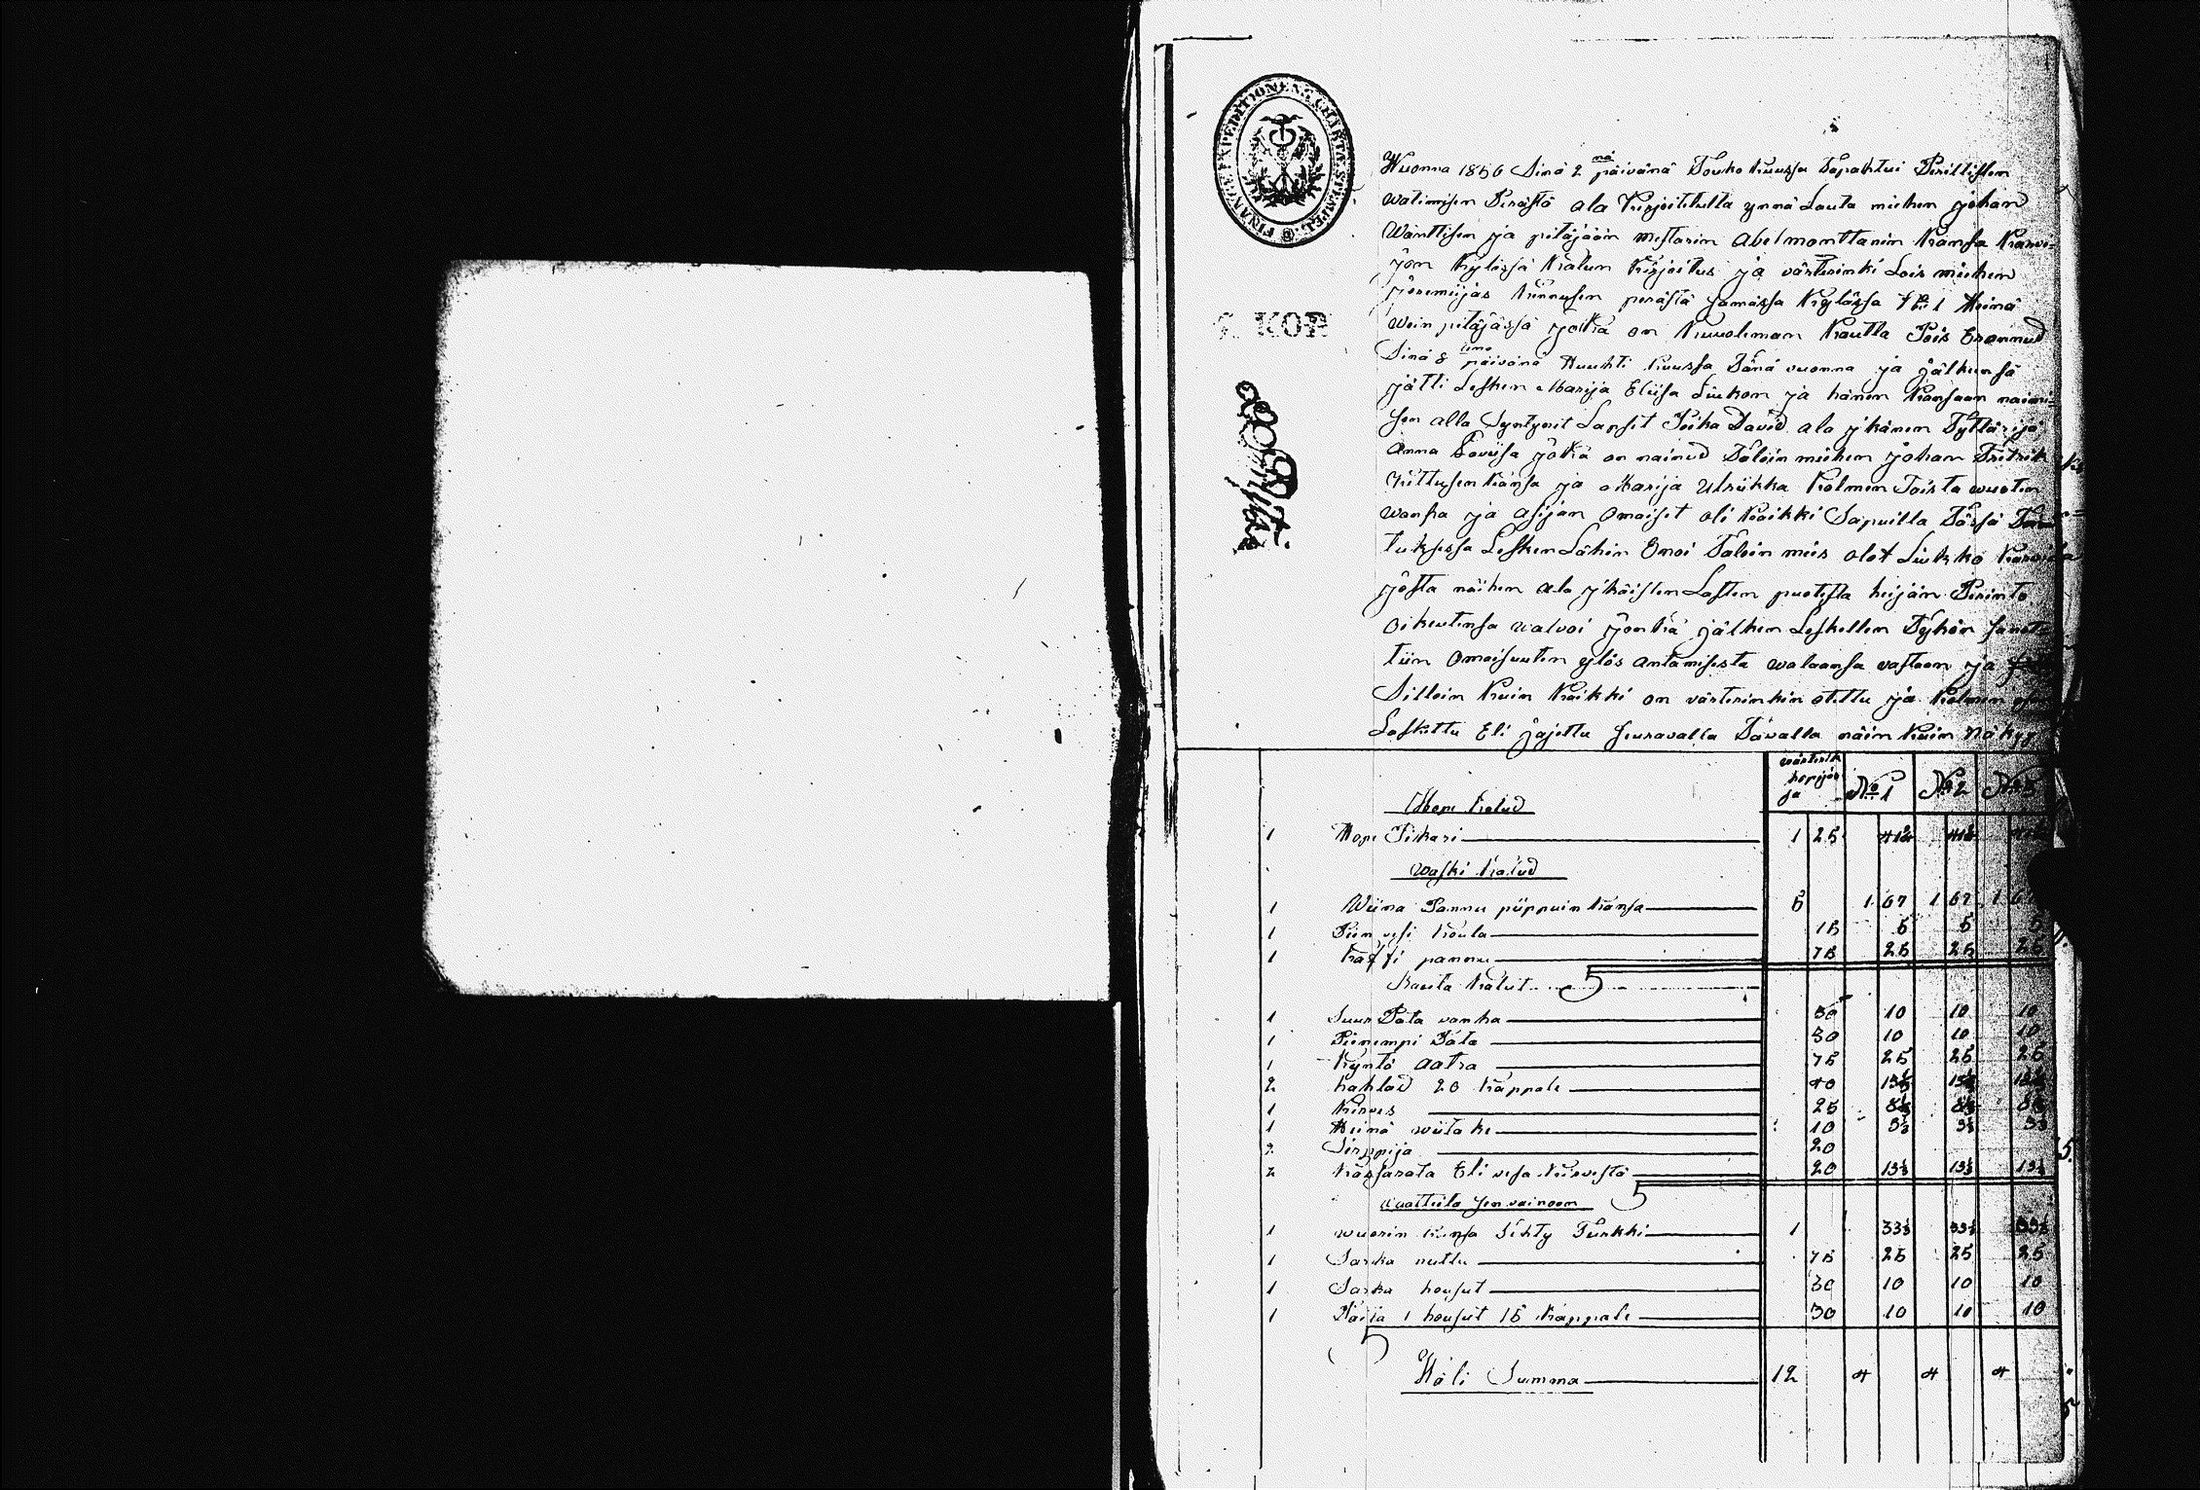 FINANCE EXPEDITIONENS CHARTÆ STEMPEL
KOP
Wuonna 1856 Sinä 2 nä päivänä Touko kuussa Tapahtui Perillisten
watimisen Perästä ala Kirjoitetulta ynnä Lauta miehen johan
Wänttisen ja pitäjään mestarin Abel monttanin kansa Karvi-
jon kylässä kalun kirjoitus ja värterinki Lois miehen
jeremijas kinnusen perästä samassa kylässä № 1 Heinä
wein pitäjässä jotka on kuuoleman kautta Pois Erannud
Sinä 8 päivänä Huuhti kuussa Tänä vuonna ja jälkeensä
jätti Lesken Marija Eliisa Liukon ja hänen kansaan naimi-
sen alla Syntynit Lapsit Poika David ala ikänen Tyttärijä
Anna Loviisa jotka on nainud Taloin miehen johan Fretrik
kittusen kansa ja Marija Ulriikka kolmen Toista wuoten
wanha ja asijan omaiset oli kaikki Sapuilla Tässä
tuksessa Lesken Lähin Enoi Taloin mies olot Liukko
josta näihen ala ikäisten Lasten puolesta heijän Perintö
oikeutensa walvoi jonka jälken Leskellen Tykön
tiin omaisuuten ylös antamisesta walaansa vastaan ja
Silloin kuin kaikki on värterinkin otettu ja kolmen
Laskettu Eli jajettu Seuravalla Tavalla näin kuin Näkyy
värterik hopijas sa № 1 № 2 № 3
Hopi kalud
1 Hopi Pikari 1 25
Waski kalud
1 Wiina Pannu piippuin kansa 5 1 67 1 67 1
1 Piim vesi koula 15 5 5 5
1 kaffi pannu 75 25 25 25
Rauta kalut
1 Suur Pata vanha 30 10 10 10
1 Pienempi Pata 30 10 10 10
1 kyntö aatra 75 25 25 25
2 kahlad 20 kappale 40 13⅓ 13⅓ 13⅓
1 kirves 25 8⅓ 8⅓ 8⅓
1 Heinä wiitake 10 3⅓ 3⅓ 3⅓
2 Sirppijä 20
2 Eli vesa kirvestä 20 13⅓ 13⅓ 13⅓
waatteita Jen vainoon
1 wuorin kansa Tehty Turkki 1 33⅓ 33⅓ 33⅓
1 Sarka nuttu 75 25 25 25
1 Sarka housut 30 10 10 10
1 1 housut 15 kappale 30 10 10 10
Käli Summa 12 4 4 4